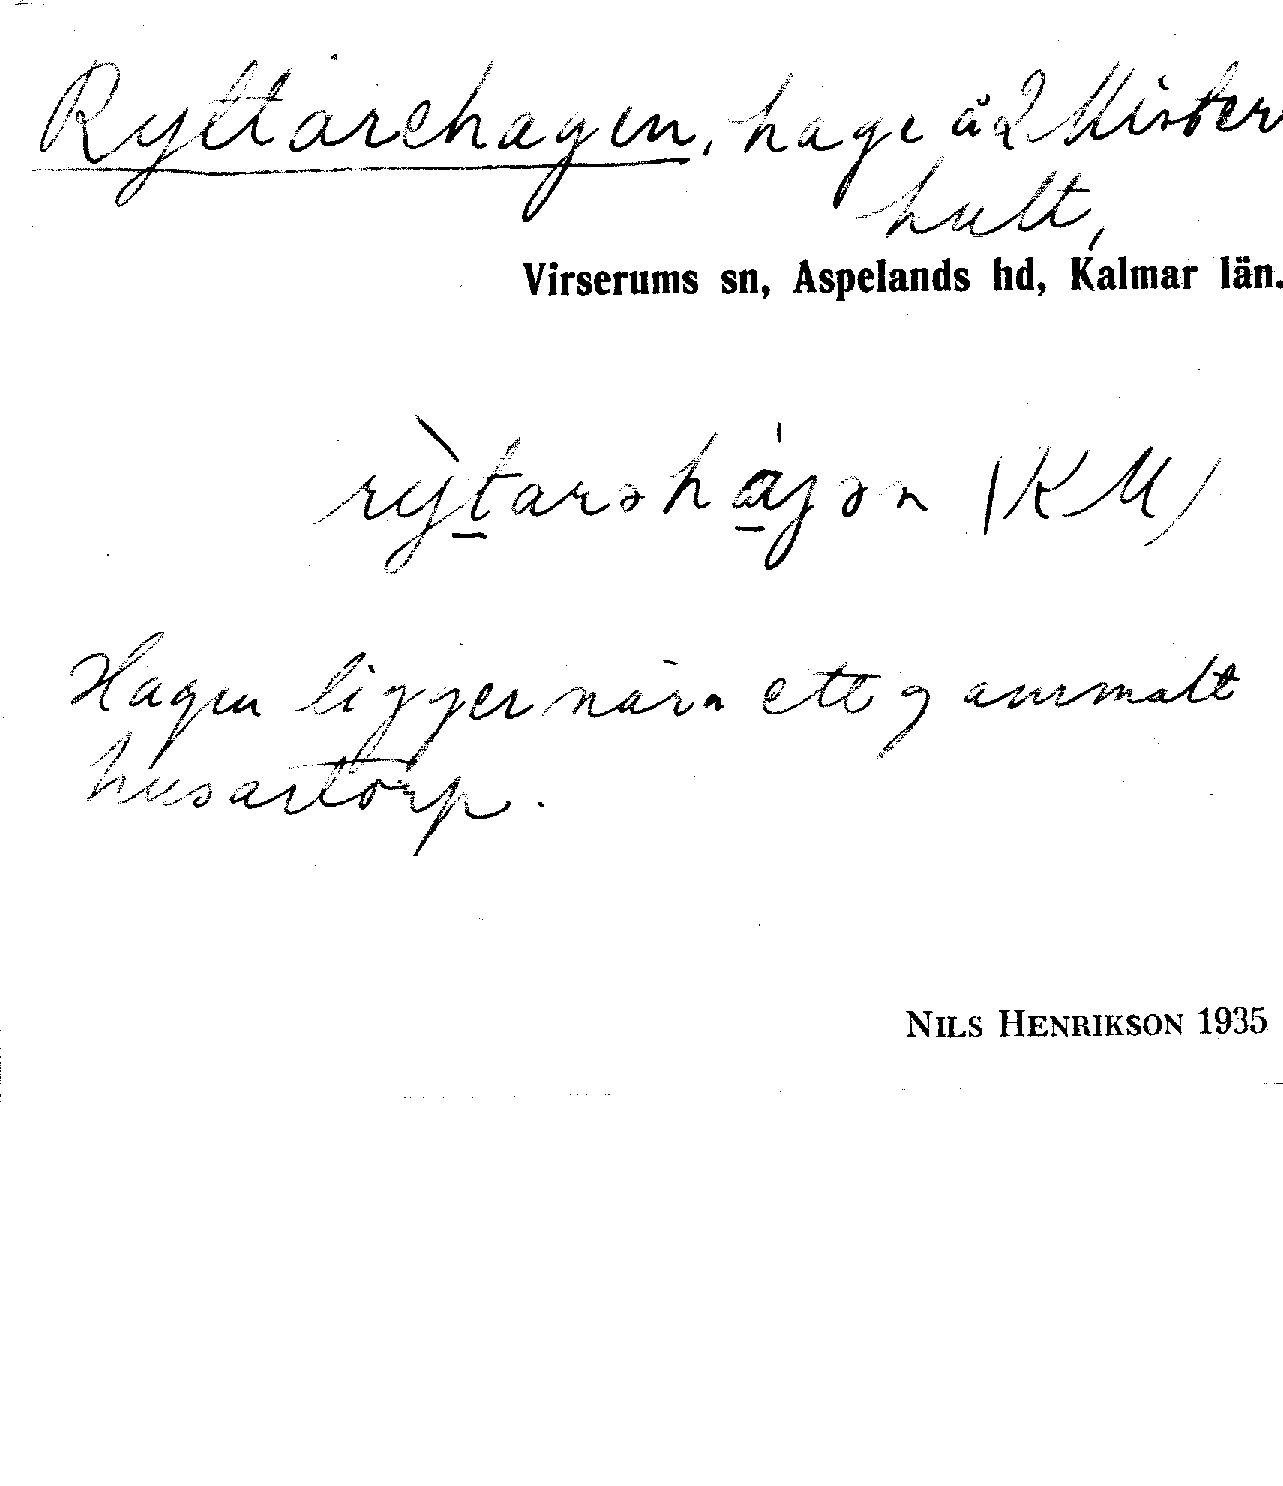 Ryttarehagen, hage å 2 Mister
hult,
Virserums sn, Aspelands hd, Kalmar län.
rỳtarəhájən (KM)
Hagen ligger nära ett gammalt
husartorp.
NILS HENRIKSON 1935